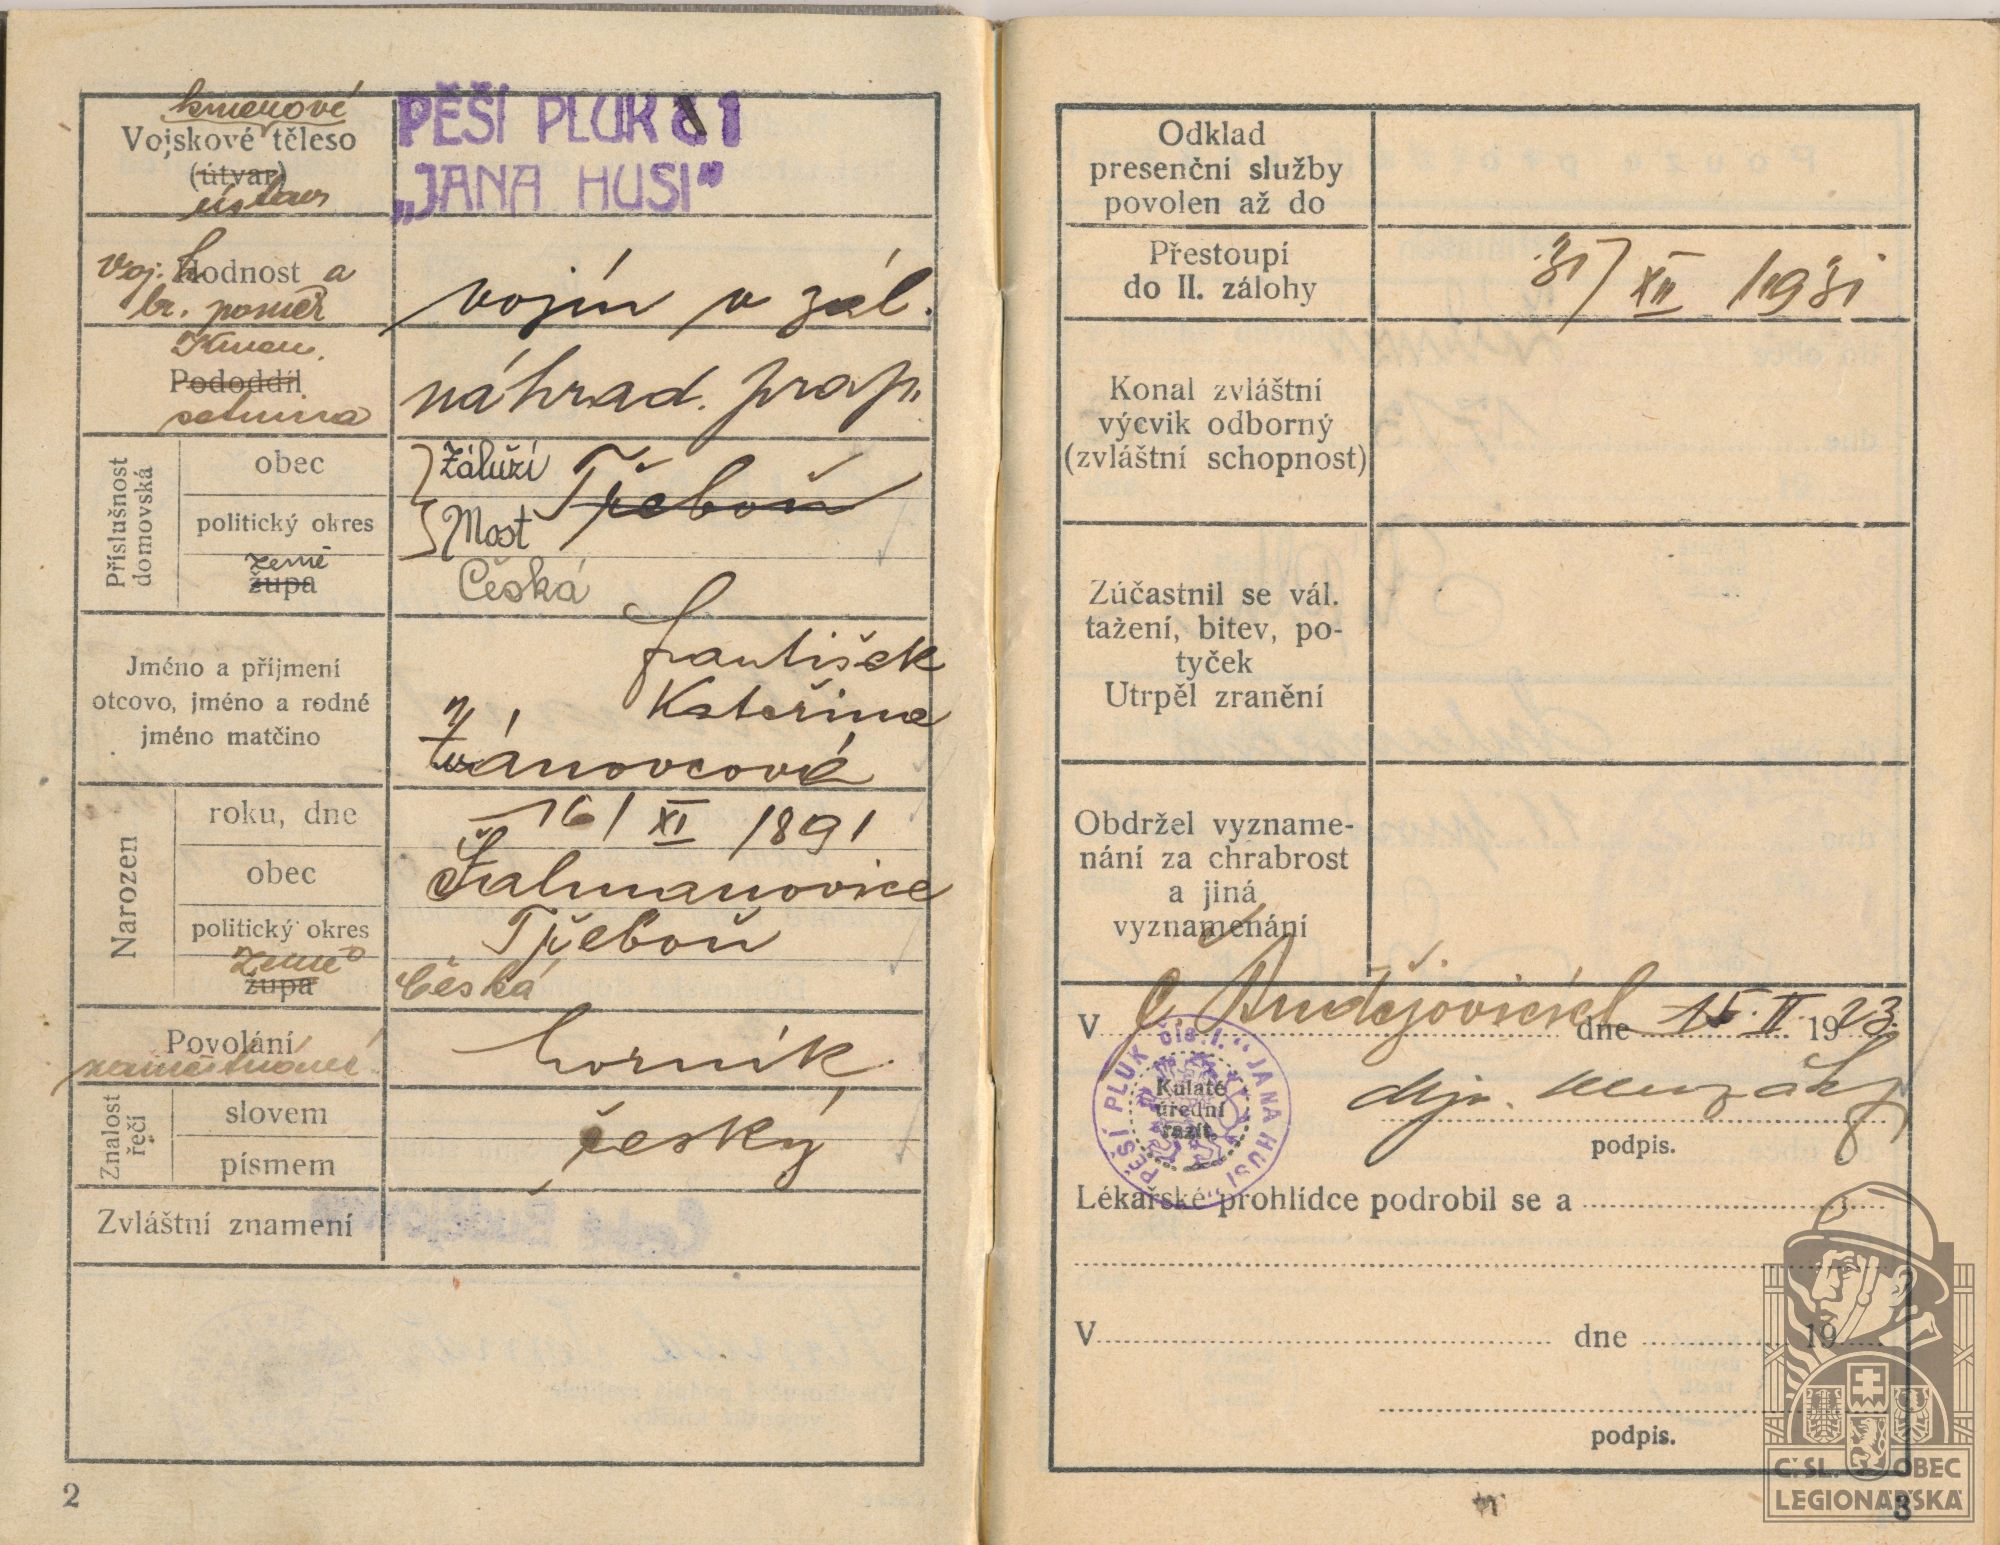 kmenové
Vojskové těleso
(útvar)
ústav
PĚŠÍ PLUK č 1
„JANA HUSI"
voj. Hodnost a
br. poměr
vojín v zál.
Kmen.
Pododdíl
setnina
náhrad. prap.
Příslušnost
domovská
obec
Záluží Třeboň
politický okres
Most
země
župa
Česká
Jméno a příjmení
otcovo, jméno a rodné
jméno matčino
František
Kateřina
Narozen
roku, dne
16/ XI 1891
obec
politický okres
Třeboň
Země
župa
Česká
Povolání
zaměstnání
horník
Znalost
řečí
slovem
písmem
český
Zvláštní znamení
2
Odklad
presenční služby
povolen až do
Přestoupí
do II. zálohy
31/ XII 1931
Konal zvláštní
výcvik odborný
(zvláštní schopnost)
Zúčastnil se vál.
tažení, bitev, po-
tyček
Utrpěl zranění
Obdržel vyzname-
nání za chrabrost
a jiná
vyznamenání
V Č. Budějovicích dne 15. II. 1923.
PĚŠÍ PLUK čís. 1. „JANA HUSI"
Kulaté
úřední
razít.
podpis.
Lékařské prohlídce podrobil se a
V dne 19
podpis.
Č. SL. OBEC
LEGIONÁŘSKÁ
3